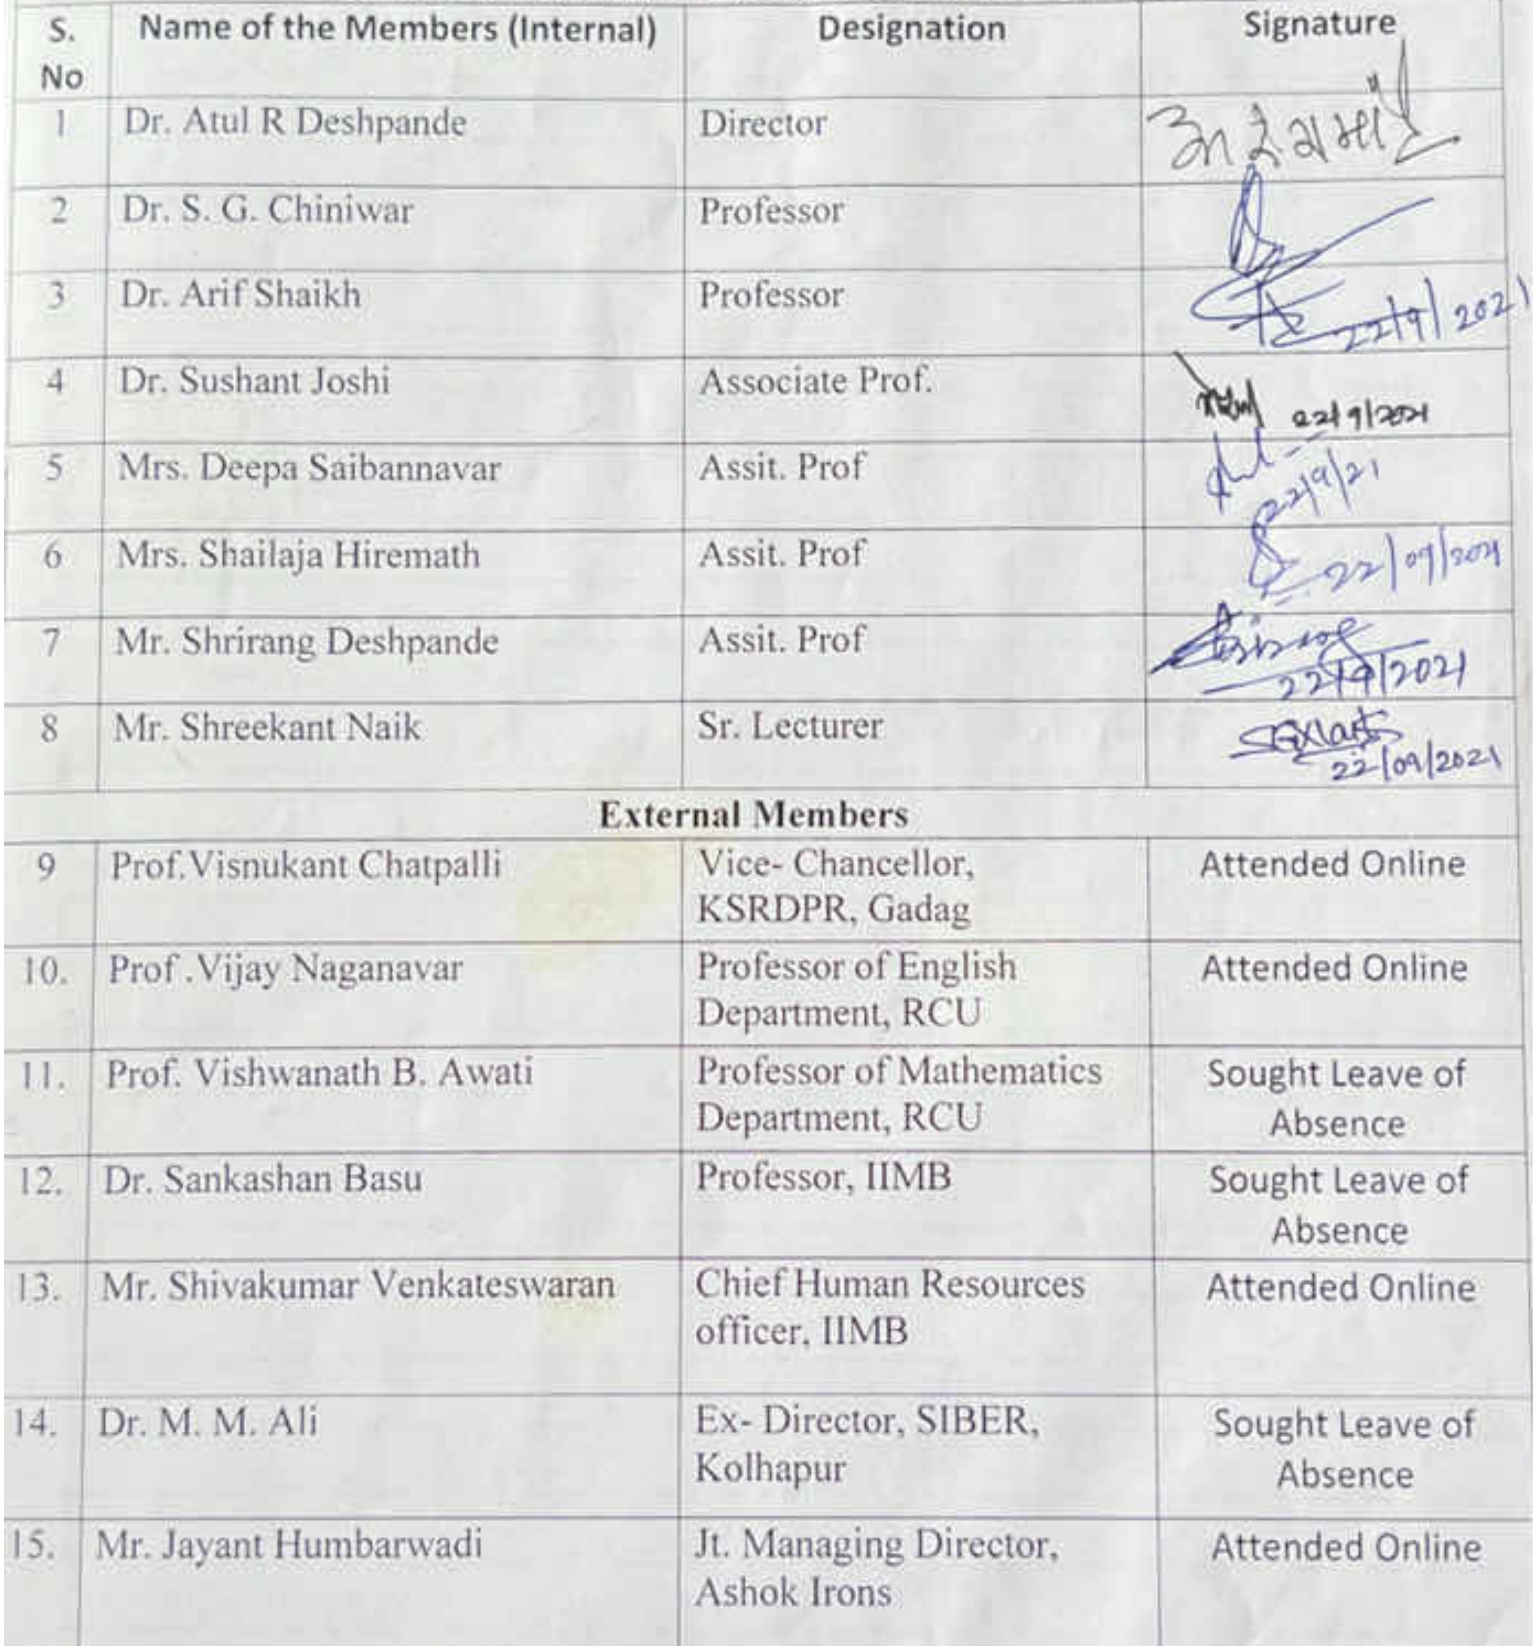 S. No Name of the Members (Internal) Designation Signature
1 Dr. Atul R Deshpande Director
2 Dr. S. G. Chiniwar Professor
3 Dr. Arif Shaikh Professor 22/9/2021
4 Dr. Sushant Joshi Associate Prof. 22/9/2021
5 Mrs. Deepa Saibannavar Assit. Prof 22/9/21
6 Mrs. Shailaja Hiremath Assit. Prof 22/09/2021
7 Mr. Shrirang Deshpande Assit. Prof 22/9/2021
8 Mr. Shreekant Naik Sr. Lecturer 22/09/2021
External Members
9 Prof.Visnukant Chatpalli Vice- Chancellor, Attended Online
KSRDPR, Gadag
10. Prof .Vijay Naganavar Professor of English Attended Online
Department, RCU
11. Prof. Vishwanath B. Awati Professor of Mathematics Sought Leave of
Department, RCU Absence
12. Dr. Sankashan Basu Professor, IIMB Sought Leave of
Absence
13. Mr. Shivakumar Venkateswaran Chief Human Resources Attended Online
officer, IIMB
14. Dr. M. M. Ali Ex- Director, SIBER, Sought Leave of
Kolhapur Absence
15. Mr. Jayant Humbarwadi Jt. Managing Director, Attended Online
Ashok Irons